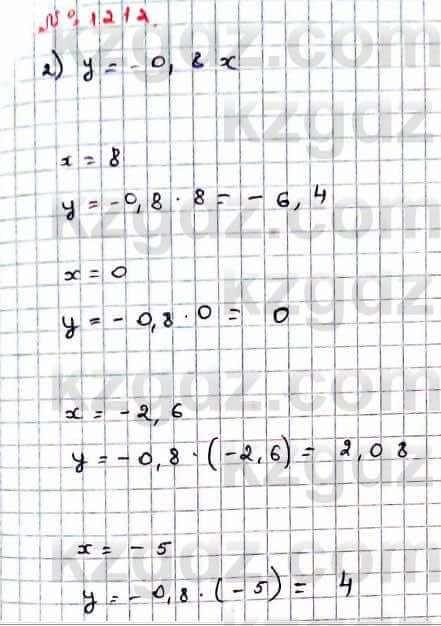 № 1212.
2) y = -0,8 x
x = 8
y = -0,8 · 8 = -6,4
x = 0
y = -0,8 · 0 = 0
x = -2,6
y = -0,8 · (-2,6) = 2,08
x = -5
y = -0,8 · (-5) = 4
kzgdz.com
kzgdz
kzgdz.com
kzgdz
kzgdz.com
kzgdz
kzgdz.com
kzgdz